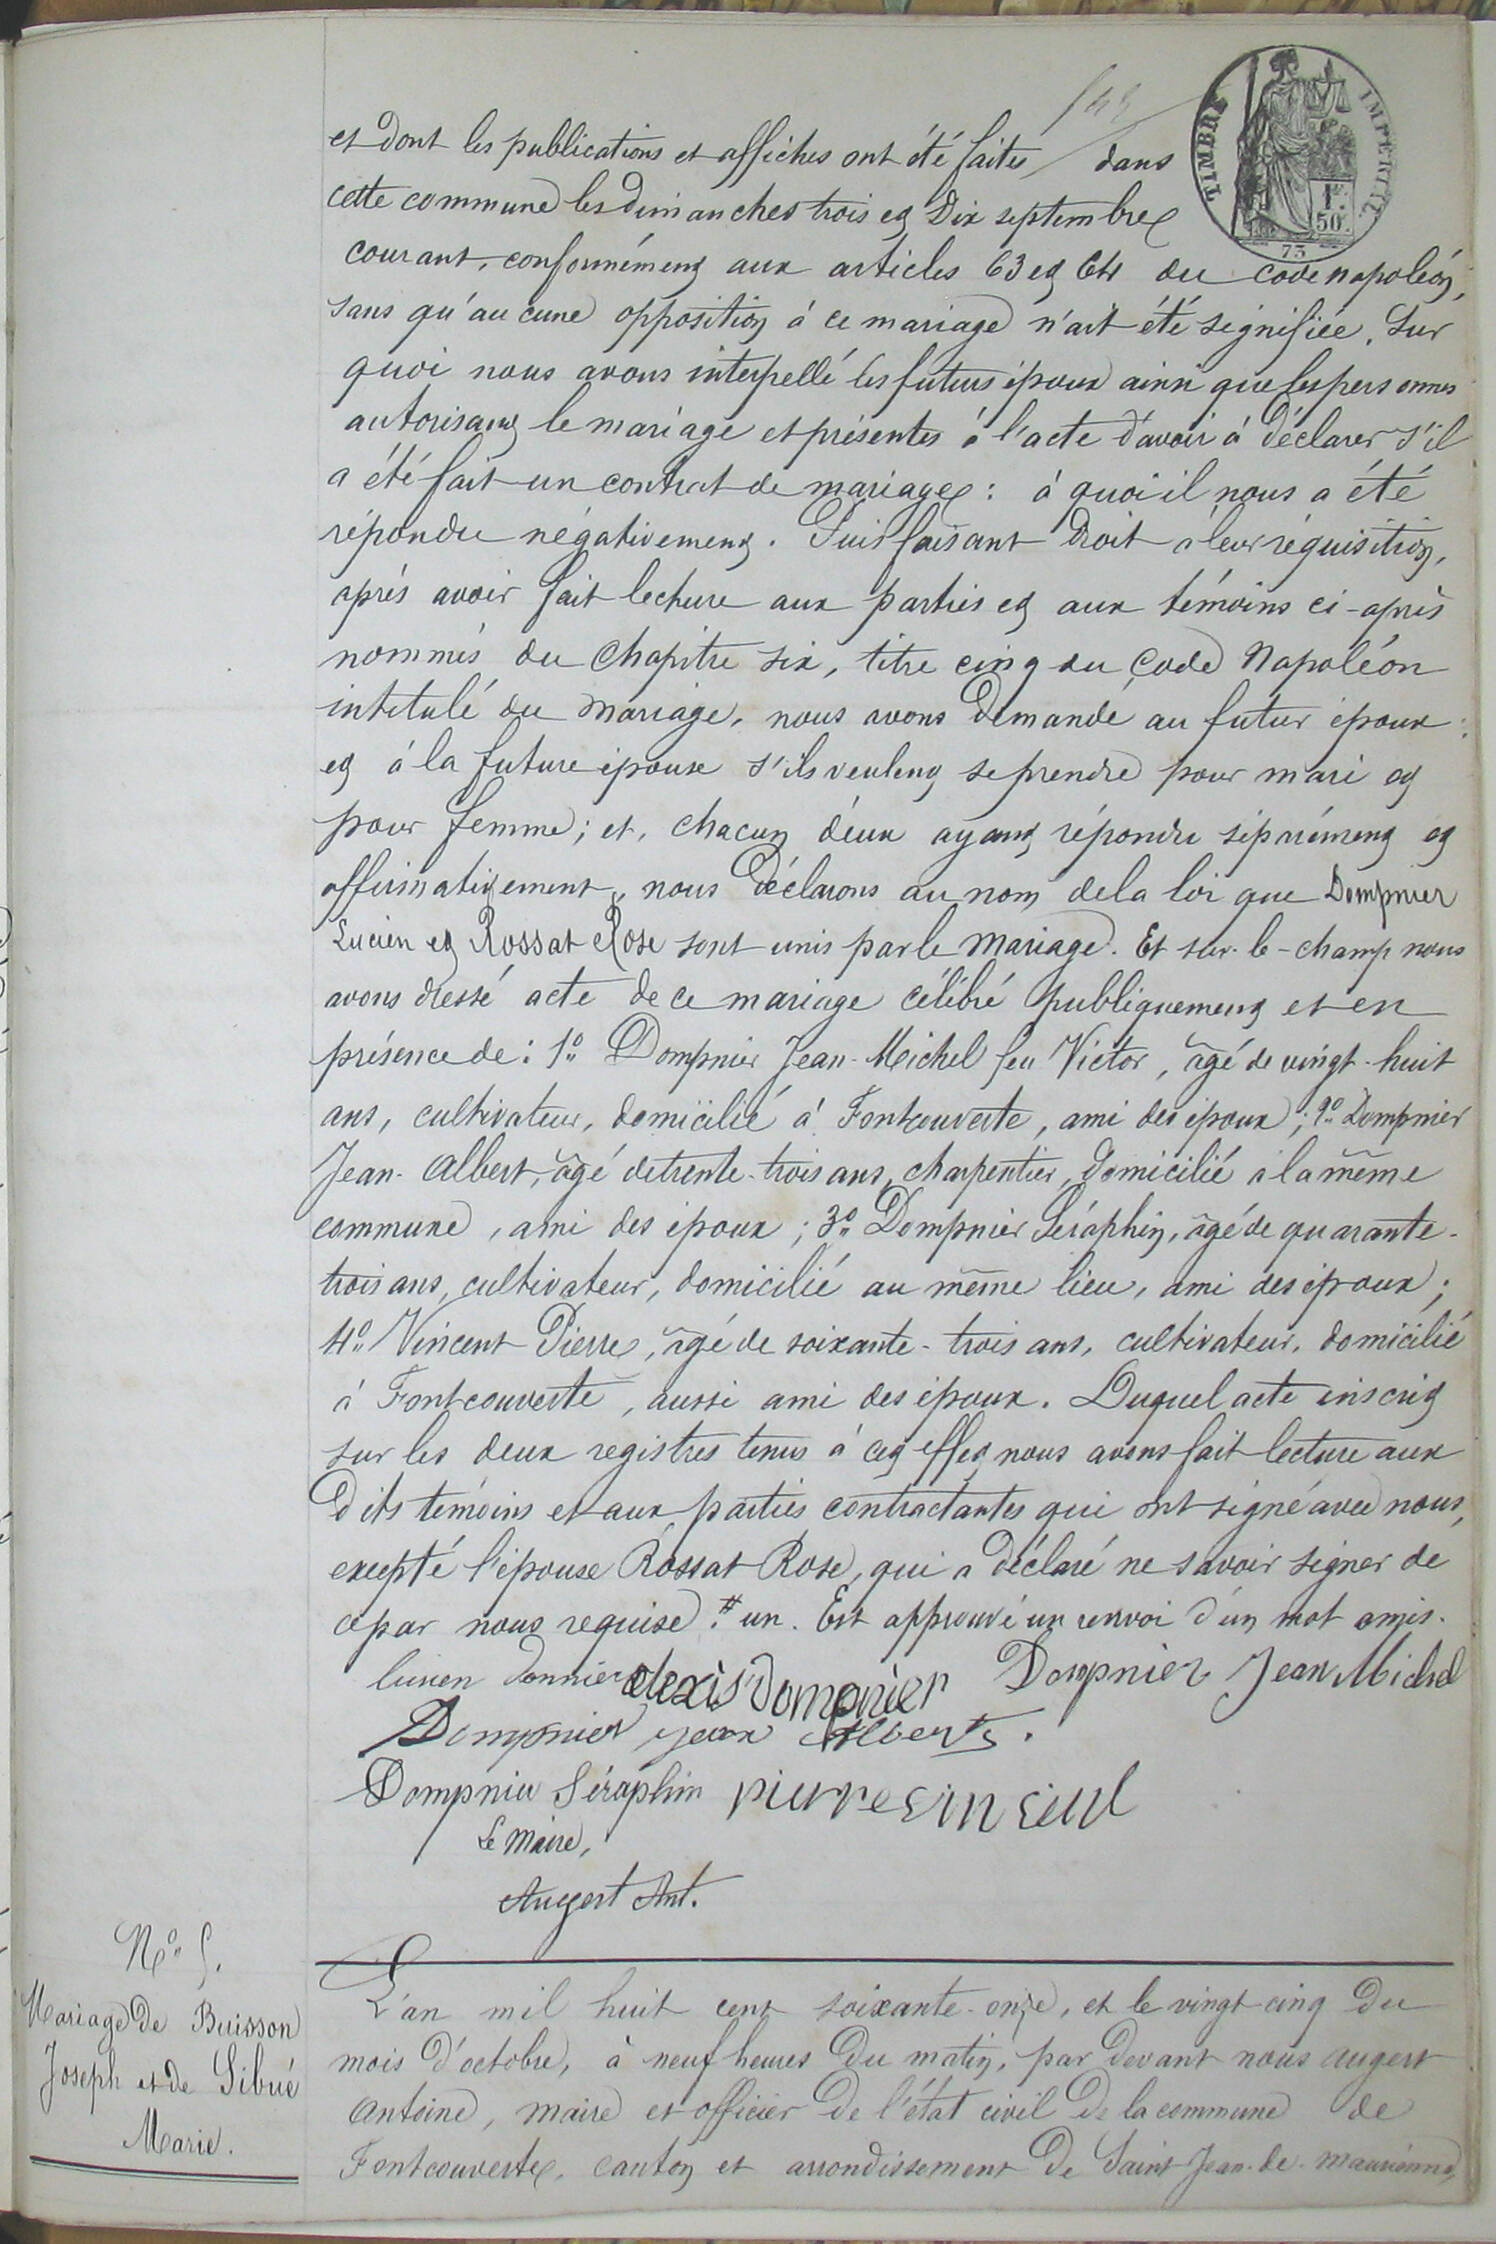 TIMBRE IMPERIAL
1F. 50c.
73
et dont les publications et affiches ont été faites dans
cette commune les dimanches trois et dix septembre
courant, conformément aux articles 63 et 64 du code napoléon,
sans qu'aucune opposition à ce mariage n'ait été signifiée. Sur
quoi nous avons interpellé les futurs époux ainsi que les personnes
autorisant le mariage et présentes à l'acte d'avoir à déclarer s'il
a été fait un contrat de mariage : à quoi il nous a été
répondu négativement. Puis faisant droit à leur réquisition,
après avoir fait lecture aux parties et aux témoins ci-après
nommés du chapitre six, titre cinq du Code Napoléon
intitulé du Mariage, nous avons demandé au futur époux
et à la future épouse s'ils veulent se prendre pour mari et
pour femme; et, chacun d'eux ayant répondu séparément et
affirmativement, nous déclarons au nom de la loi que Dompnier
Lucien et Rossat Rose sont unis par le Mariage. Et sur-le-champ nous
avons dressé acte de ce mariage célébré publiquement et en
présence de : 1º Dompnier Jean-Michel feu Victor, âgé de vingt-huit
ans, cultivateur, domicilié à Fontcouverte, ami des époux; 2º Dompnier
Jean-Albert, âgé de trente-trois ans, charpentier, domicilié à la même
commune, ami des époux; 3º Dompnier Séraphin, âgé de quarante-
trois ans, cultivateur, domicilié au même lieu, ami des époux;
4º Vincent Pierre, âgé de soixante-trois ans, cultivateur, domicilié
à Fontcouverte, aussi ami des époux. Duquel acte inscrit
sur les deux registres tenus à cet effet nous avons fait lecture aux
dits témoins et aux parties contractantes qui ont signé avec nous,
excepté l'épouse Rossat Rose, qui a déclaré ne savoir signer de
ce par nous requise. # un. Est approuvé un renvoi d'un mot omis.
lucien donnier alexis dompnier Dompnier Jean Michel
Dompnier jean Albert.
Dompnier Séraphin pierre vincent
Le Maire,
Augert Ant.
Nº 5.
Mariage de Buisson
Joseph et de Sibué
Marie.
L'an mil huit cent soixante-onze, et le vingt cinq du
mois d'octobre, à neuf heures du matin, par devant nous Augert
Antoine, maire et officier de l'état civil de la commune de
Fontcouverte, canton et arrondissement de Saint-Jean-de-maurienne,